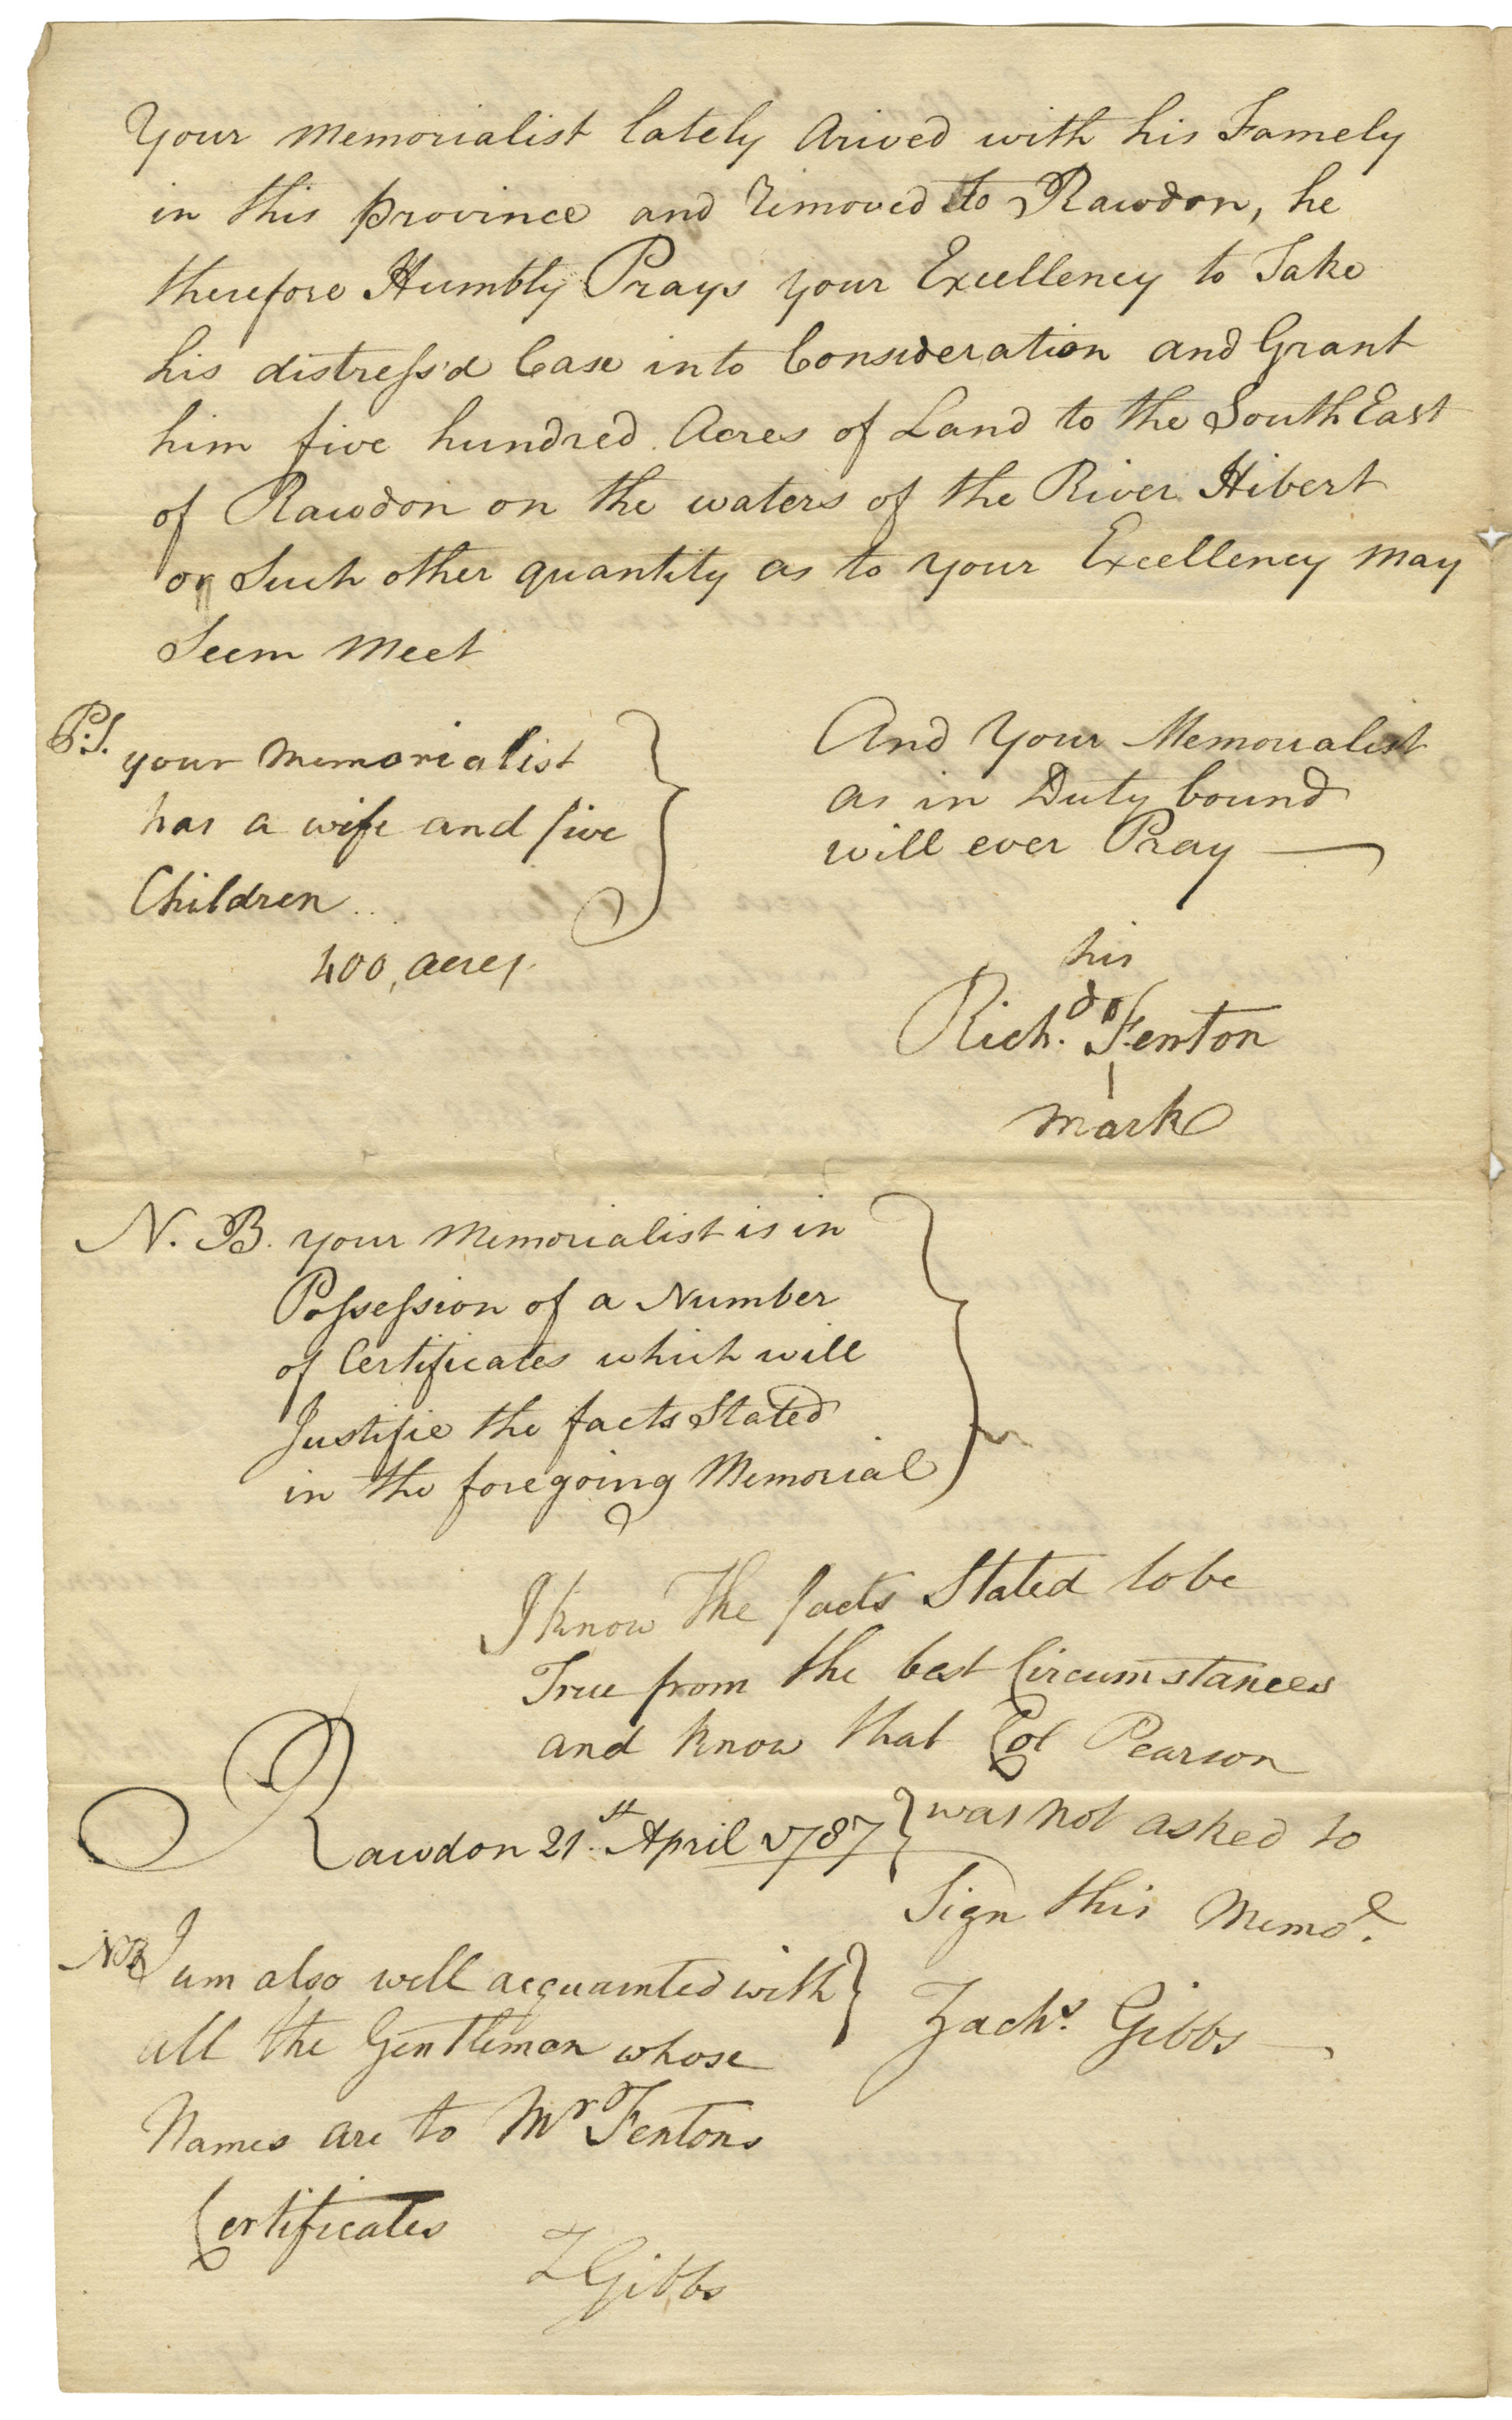 Your Memorialist lately Arived with his Famely
in this province and Removed to Rawdon, he
therefore Humbly Prays your Excellency to Take
his distress'd Case into Consideration and Grant
him five hundred Acres of Land to the South East
of Rawdon on the waters of the River Hibert
or Such other quantity as to your Excellency may
Seem Meet
P.S. your Memorialist
has a wife and five
Children
400, acres.
And Your Memorialist
as in Duty bound
will ever Pray
his
Rich.d Fenton
mark
N. B. your Memorialist is in
Possession of a Number
of Certificates which will
Justifie the facts Stated
in the foregoing Memorial
I know The facts Stated to be
True from the best Circumstances
and know that Col Pearson
was not asked to
Sign this Memo.l
Zach.s Gibbs
Rawdon 21.st April 1787
NB I am also well acquainted with
all the Gentleman whose
Names are to Mr Fentons
Certificates
Z Gibbs